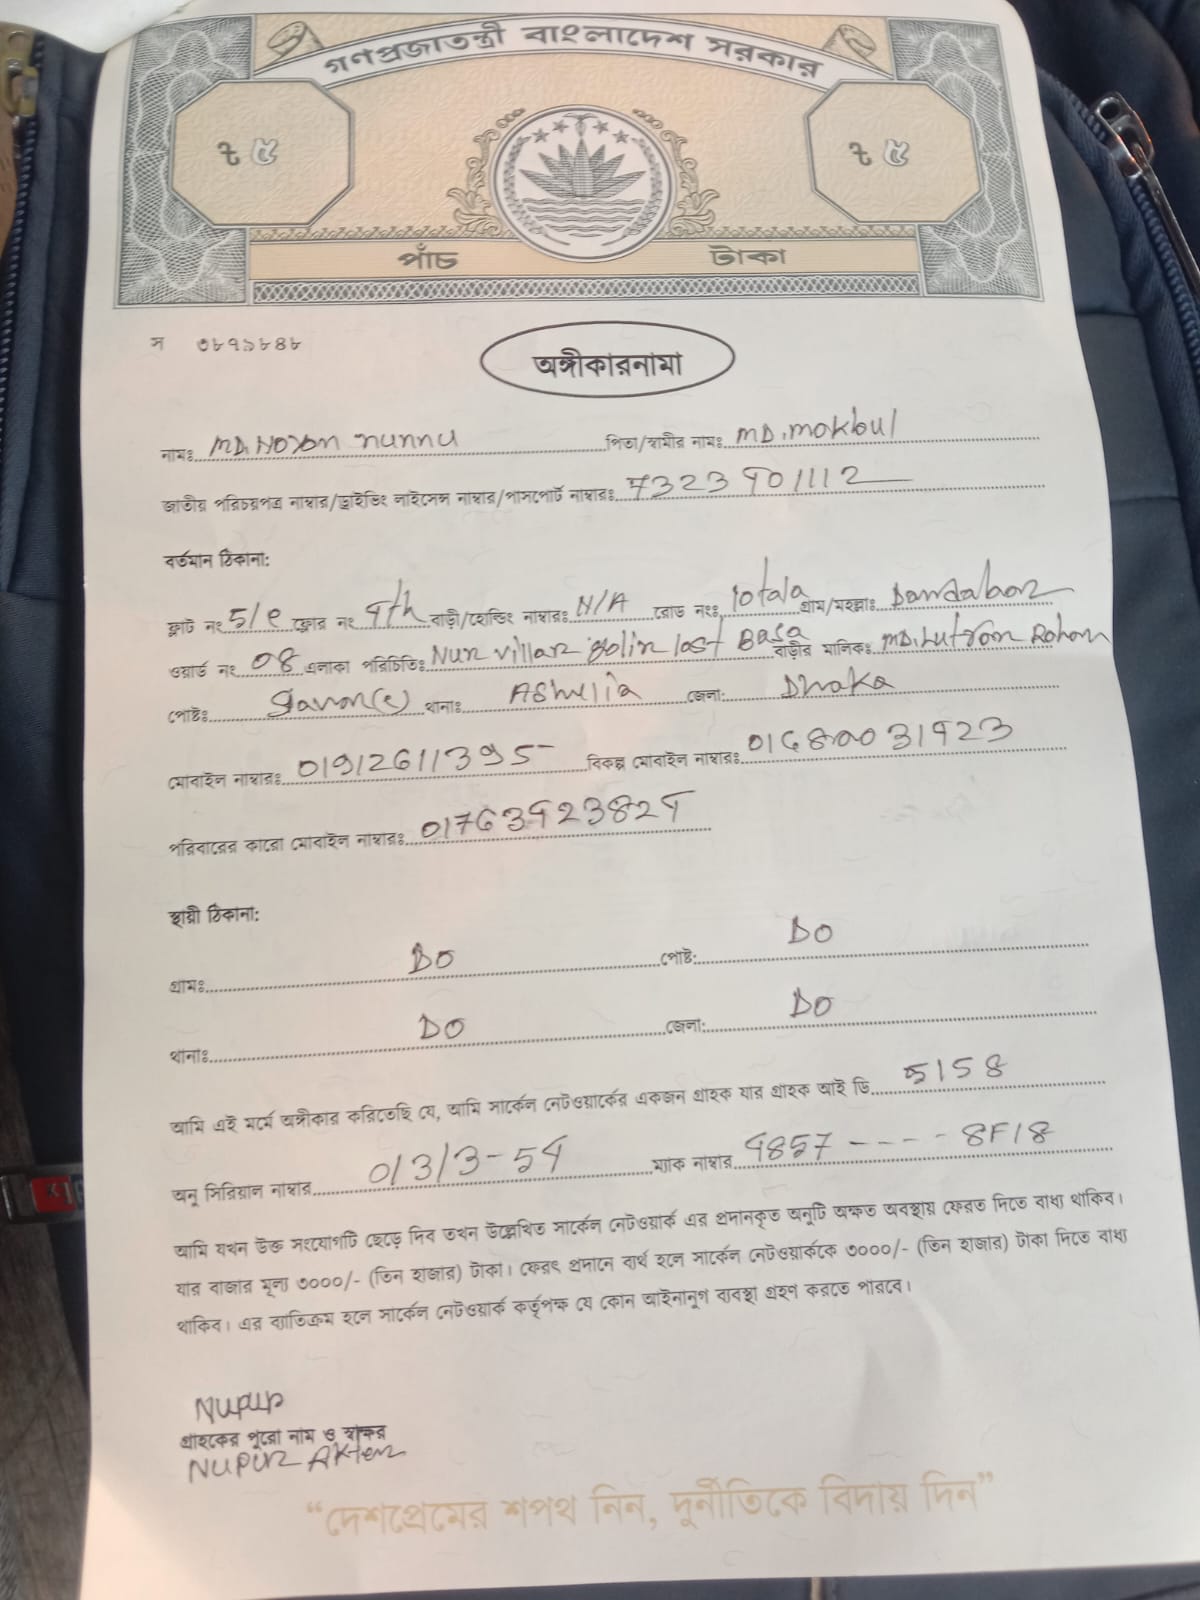 গণপ্রজাতন্ত্রী বাংলাদেশ সরকার
৳ ৫ ৳ ৫
পাঁচ টাকা
স ৩৮৭১৮৪৮
অঙ্গীকারনামা
নামঃ MD. Noyon nunnu পিতা/স্বামীর নামঃ MD. mokbul
জাতীয় পরিচয়পত্র নাম্বার/ড্রাইভিং লাইসেন্স নাম্বার/পাসপোর্ট নাম্বারঃ 7323901112
বর্তমান ঠিকানা:
ফ্লাট নং 5/e ফ্লোর নং 4th বাড়ী/হোল্ডিং নাম্বারঃ N/A রোড নংঃ 10tala গ্রাম/মহল্লাঃ Dandabor
ওয়ার্ড নং 08 এলাকা পরিচিতিঃ Nur villar golir last Basa বাড়ীর মালিকঃ MD. Lutfor Rohom
পোষ্টঃ থানাঃ Ashulia জেলা: Dhaka
মোবাইল নাম্বারঃ 01912611395 বিকল্প মোবাইল নাম্বারঃ
পরিবারের কারো মোবাইল নাম্বারঃ 01763923824
স্থায়ী ঠিকানা:
গ্রামঃ DO পোষ্ট: DO
থানাঃ DO জেলা: DO
আমি এই মর্মে অঙ্গীকার করিতেছি যে, আমি সার্কেল নেটওয়ার্কের একজন গ্রাহক যার গ্রাহক আই ডি 5158
অনু সিরিয়াল নাম্বার 01313-54 ম্যাক নাম্বার 4857 ---- 8F18
আমি যখন উক্ত সংযোগটি ছেড়ে দিব তখন উল্লেখিত সার্কেল নেটওয়ার্ক এর প্রদানকৃত অনুটি অক্ষত অবস্থায় ফেরত দিতে বাধ্য থাকিব।
যার বাজার মূল্য ৩০০০/- (তিন হাজার) টাকা। ফেরৎ প্রদানে ব্যর্থ হলে সার্কেল নেটওয়ার্ককে ৩০০০/- (তিন হাজার) টাকা দিতে বাধ্য
থাকিব। এর ব্যাতিক্রম হলে সার্কেল নেটওয়ার্ক কর্তৃপক্ষ যে কোন আইনানুগ ব্যবস্থা গ্রহণ করতে পারবে।
Nupur
গ্রাহকের পুরো নাম ও স্বাক্ষর
NUPUR AKter
“দেশপ্রেমের শপথ নিন, দুর্নীতিকে বিদায় দিন”